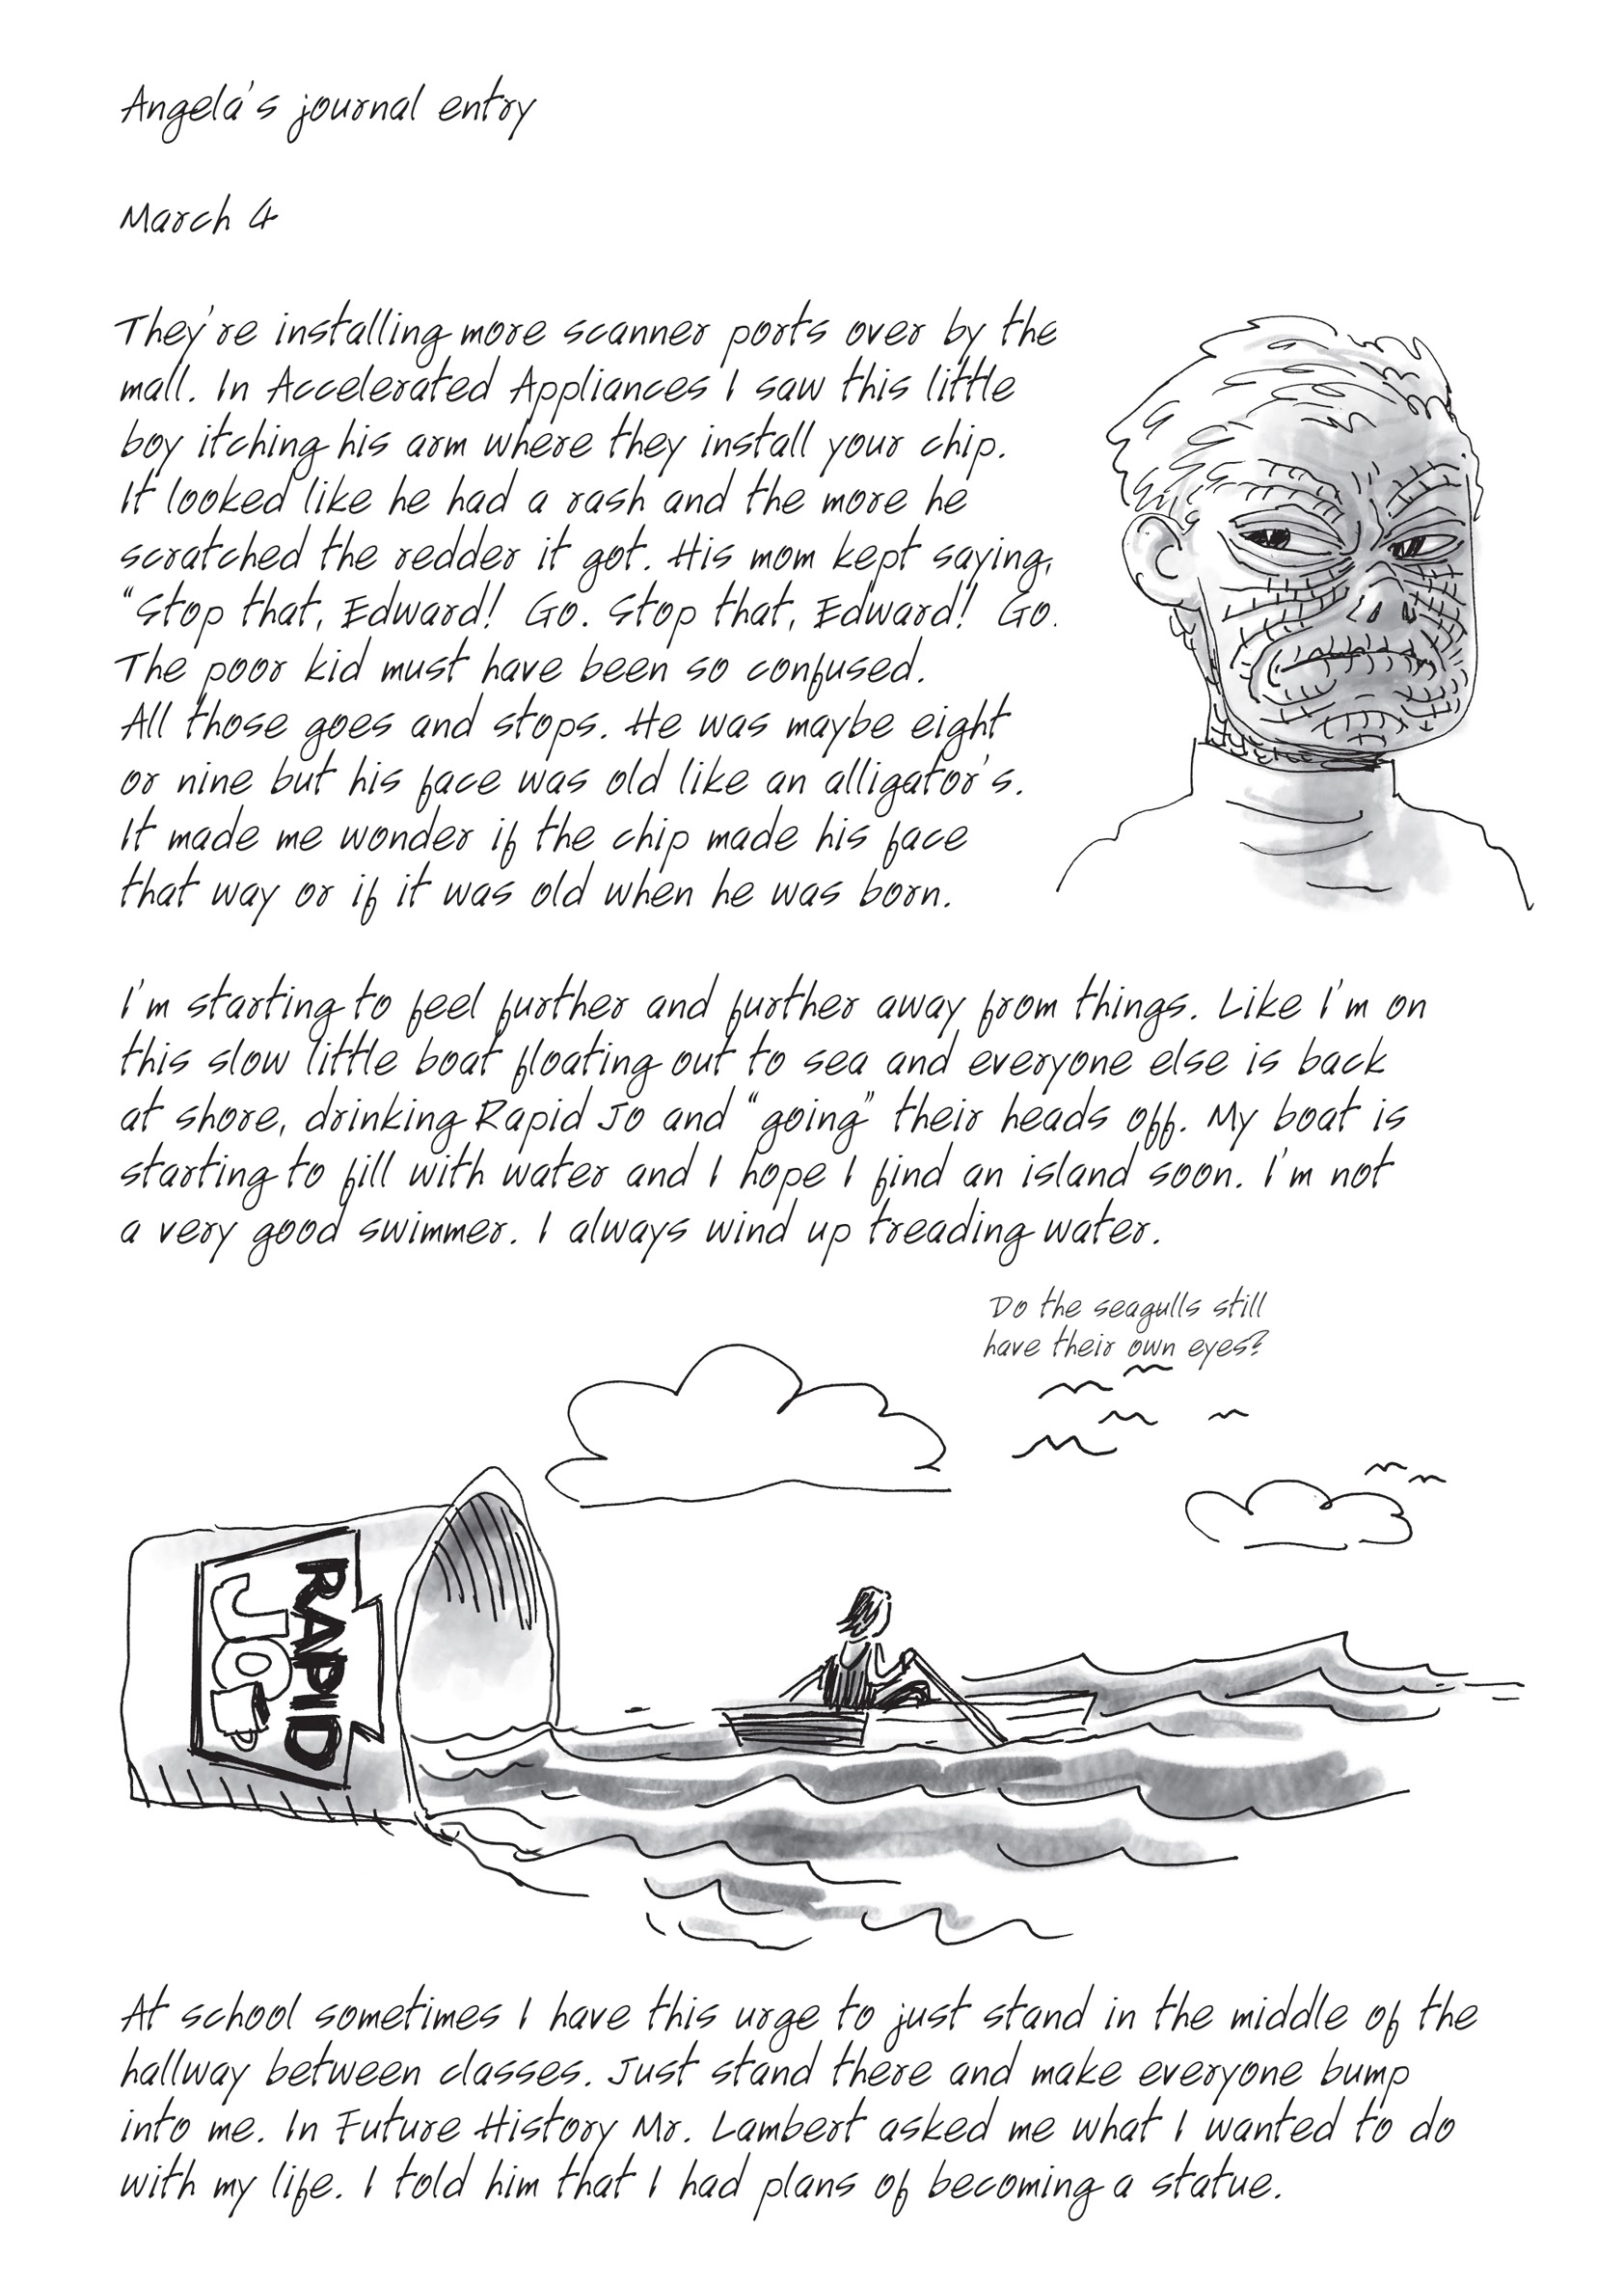 Angela's journal entry
March 4
They're installing more scanner ports over by the
mall. In Accelerated Appliances I saw this little
boy itching his arm where they install your chip.
It looked like he had a rash and the more he
scratched the redder it got. His mom kept saying,
"Stop that, Edward! Go. Stop that, Edward! Go.
The poor kid must have been so confused.
All those goes and stops. He was maybe eight
or nine but his face was old like an alligator's.
It made me wonder if the chip made his face
that way or if it was old when he was born.
I'm starting to feel further and further away from things. Like I'm on
this slow little boat floating out to sea and everyone else is back
at shore, drinking Rapid Jo and "going" their heads off. My boat is
starting to fill with water and I hope I find an island soon. I'm not
a very good swimmer. I always wind up treading water.
Do the seagulls still
have their own eyes?
RAPID
JO
At school sometimes I have this urge to just stand in the middle of the
hallway between classes. Just stand there and make everyone bump
into me. In Future History Mr. Lambert asked me what I wanted to do
with my life. I told him that I had plans of becoming a statue.